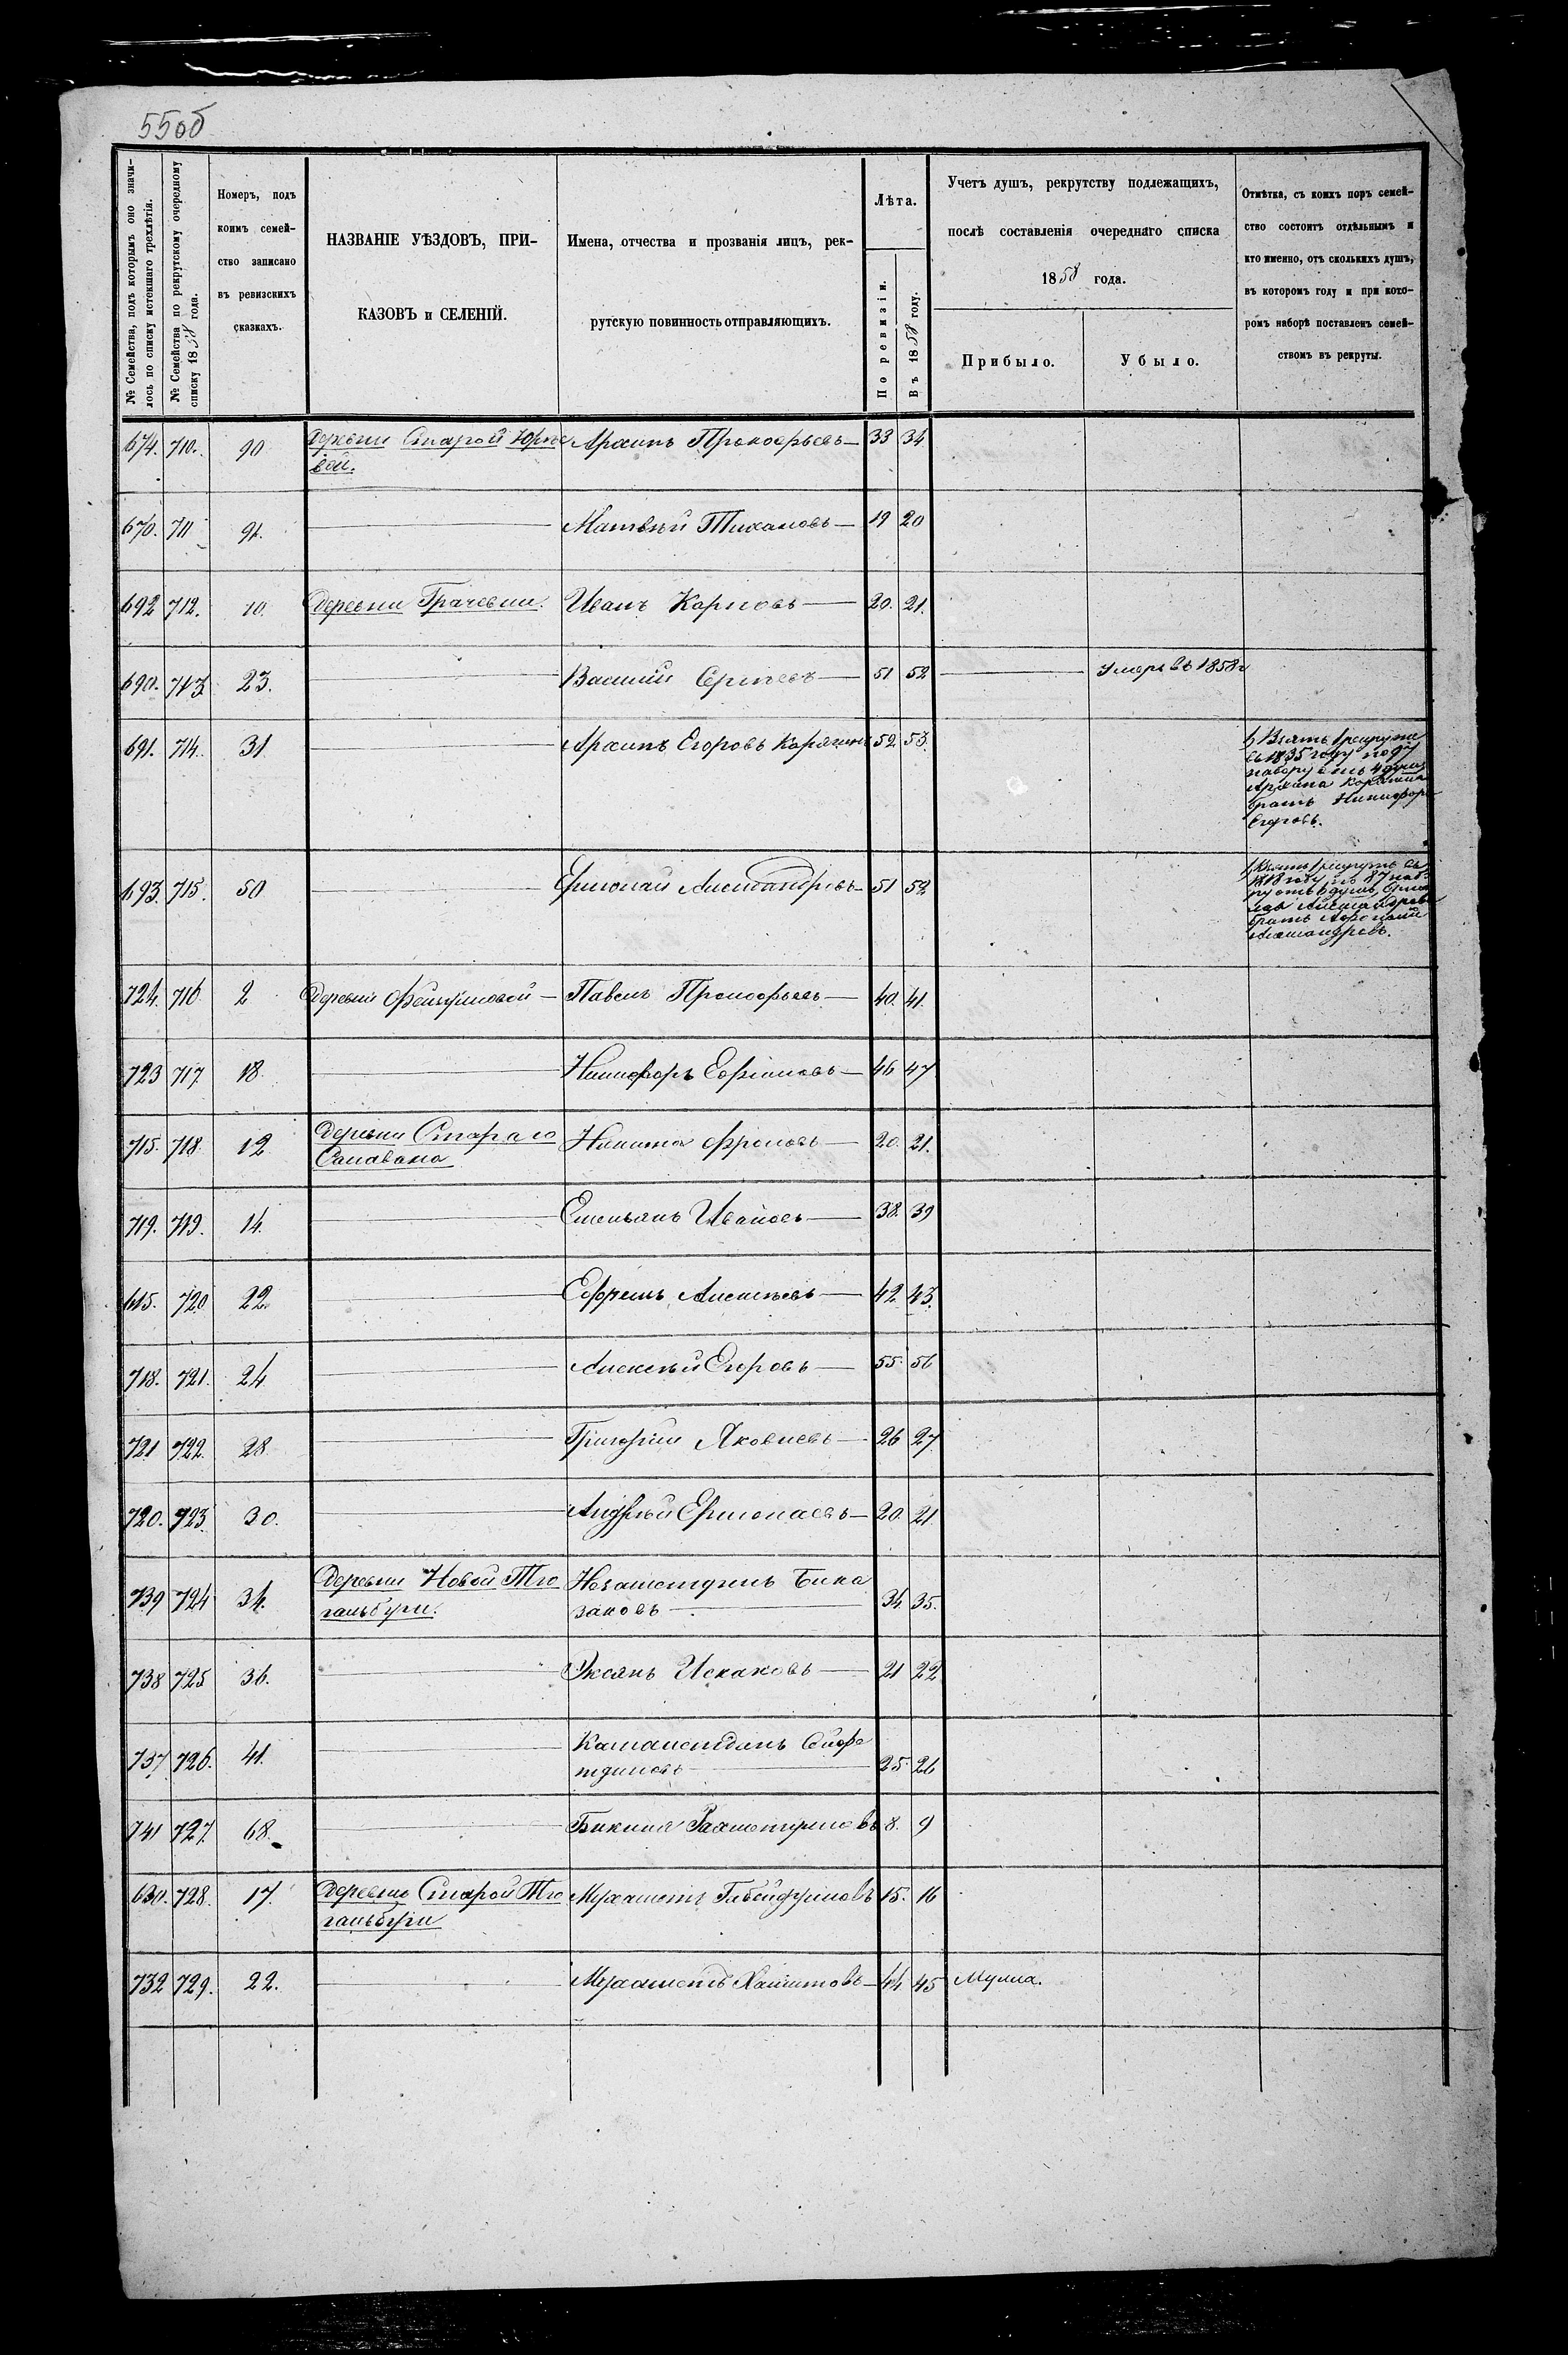 55об
№ Семейства, подъ которымъ оно значи-
лось по списку истекшаго трехлѣтія.
№ Семейства по рекрутскому очередному
списку 1858 года.
Номеръ, подъ
коимъ семей-
ство записано
въ ревизскихъ
сказкахъ.
НАЗВАНІЕ УѢЗДОВЪ, ПРИ-
КАЗОВЪ и СЕЛЕНІЙ.
Имена, отчества и прозванія лицъ, рек-
рутскую повинность отправляющихъ.
Лѣта.
По ревизіи.
Въ 1858 году.
Учетъ душъ, рекрутству подлежащихъ,
послѣ составленія очереднаго списка
1858 года.
Прибыло.
Убыло.
Отмѣтка, съ коихъ поръ семей-
ство состоитъ отдѣльнымъ и
кто именно, отъ сколькихъ душъ,
въ которомъ году и при кото-
ромъ наборѣ поставленъ семей-
ствомъ въ рекруты.
674. 710. 90 Деревни Старой Юрье Архипъ Прокофьевъ 33 34
вой.
670. 711 91. Матвѣй Тихановъ 19 20
692 712. 10. Деревни Грачевки. Иванъ Карповъ 20. 21.
690. 713 23. Василий Сергѣевъ 51 52 Умеръ въ 1858 г
691. 714. 31 Архипъ Егоровъ Карякинъ 52 53.
Взятъ в рекруты
въ 1835 году по 97
набору отъ 4 душъ
Архипа Карякина
братъ Никифоръ
Егоровъ.
693. 715. 50 Ермолай Александровъ 51 52
Взятъ в рекруты въ
1818 году по 87 наб
ру отъ 6 душъ Ермо
лая Александрова
братъ
Александровъ.
724. 716 2 Деревни Павелъ Прокофьевъ 40. 41.
723 717. 18. Никифоръ Ефимовъ 46 47
715. 718. 12 Деревни Стараго Никита Фроловъ 20. 21.
Салавана
719. 719. 14. Емельянъ Ивановъ 38. 39
615. 720 22. Ефремъ Алексѣевъ 42 43.
718. 721. 24 Алексѣй Егоровъ 55. 56
721 722. 28 Григорий Яковлевъ 26 27
720. 723. 30. Андрѣй Ермолаевъ 20. 21
739 724 34. Деревни Новой Тю Незаметдинъ Бика
гальбуги. заковъ 34 35.
738 725 36. Эксанъ Искаковъ 21 22
737 726. 41. Камалетдинъ Сейфе
тдиновъ 25. 26
741 727. 68. Биккиня Рахметуллинъ 8. 9
630. 728. 17. Деревни Старой Тю Мухаметъ Габейдуллинъ 15. 16
гальбуги
732 729. 22. Мухаметъ Халитовъ 44 45 Мулла.